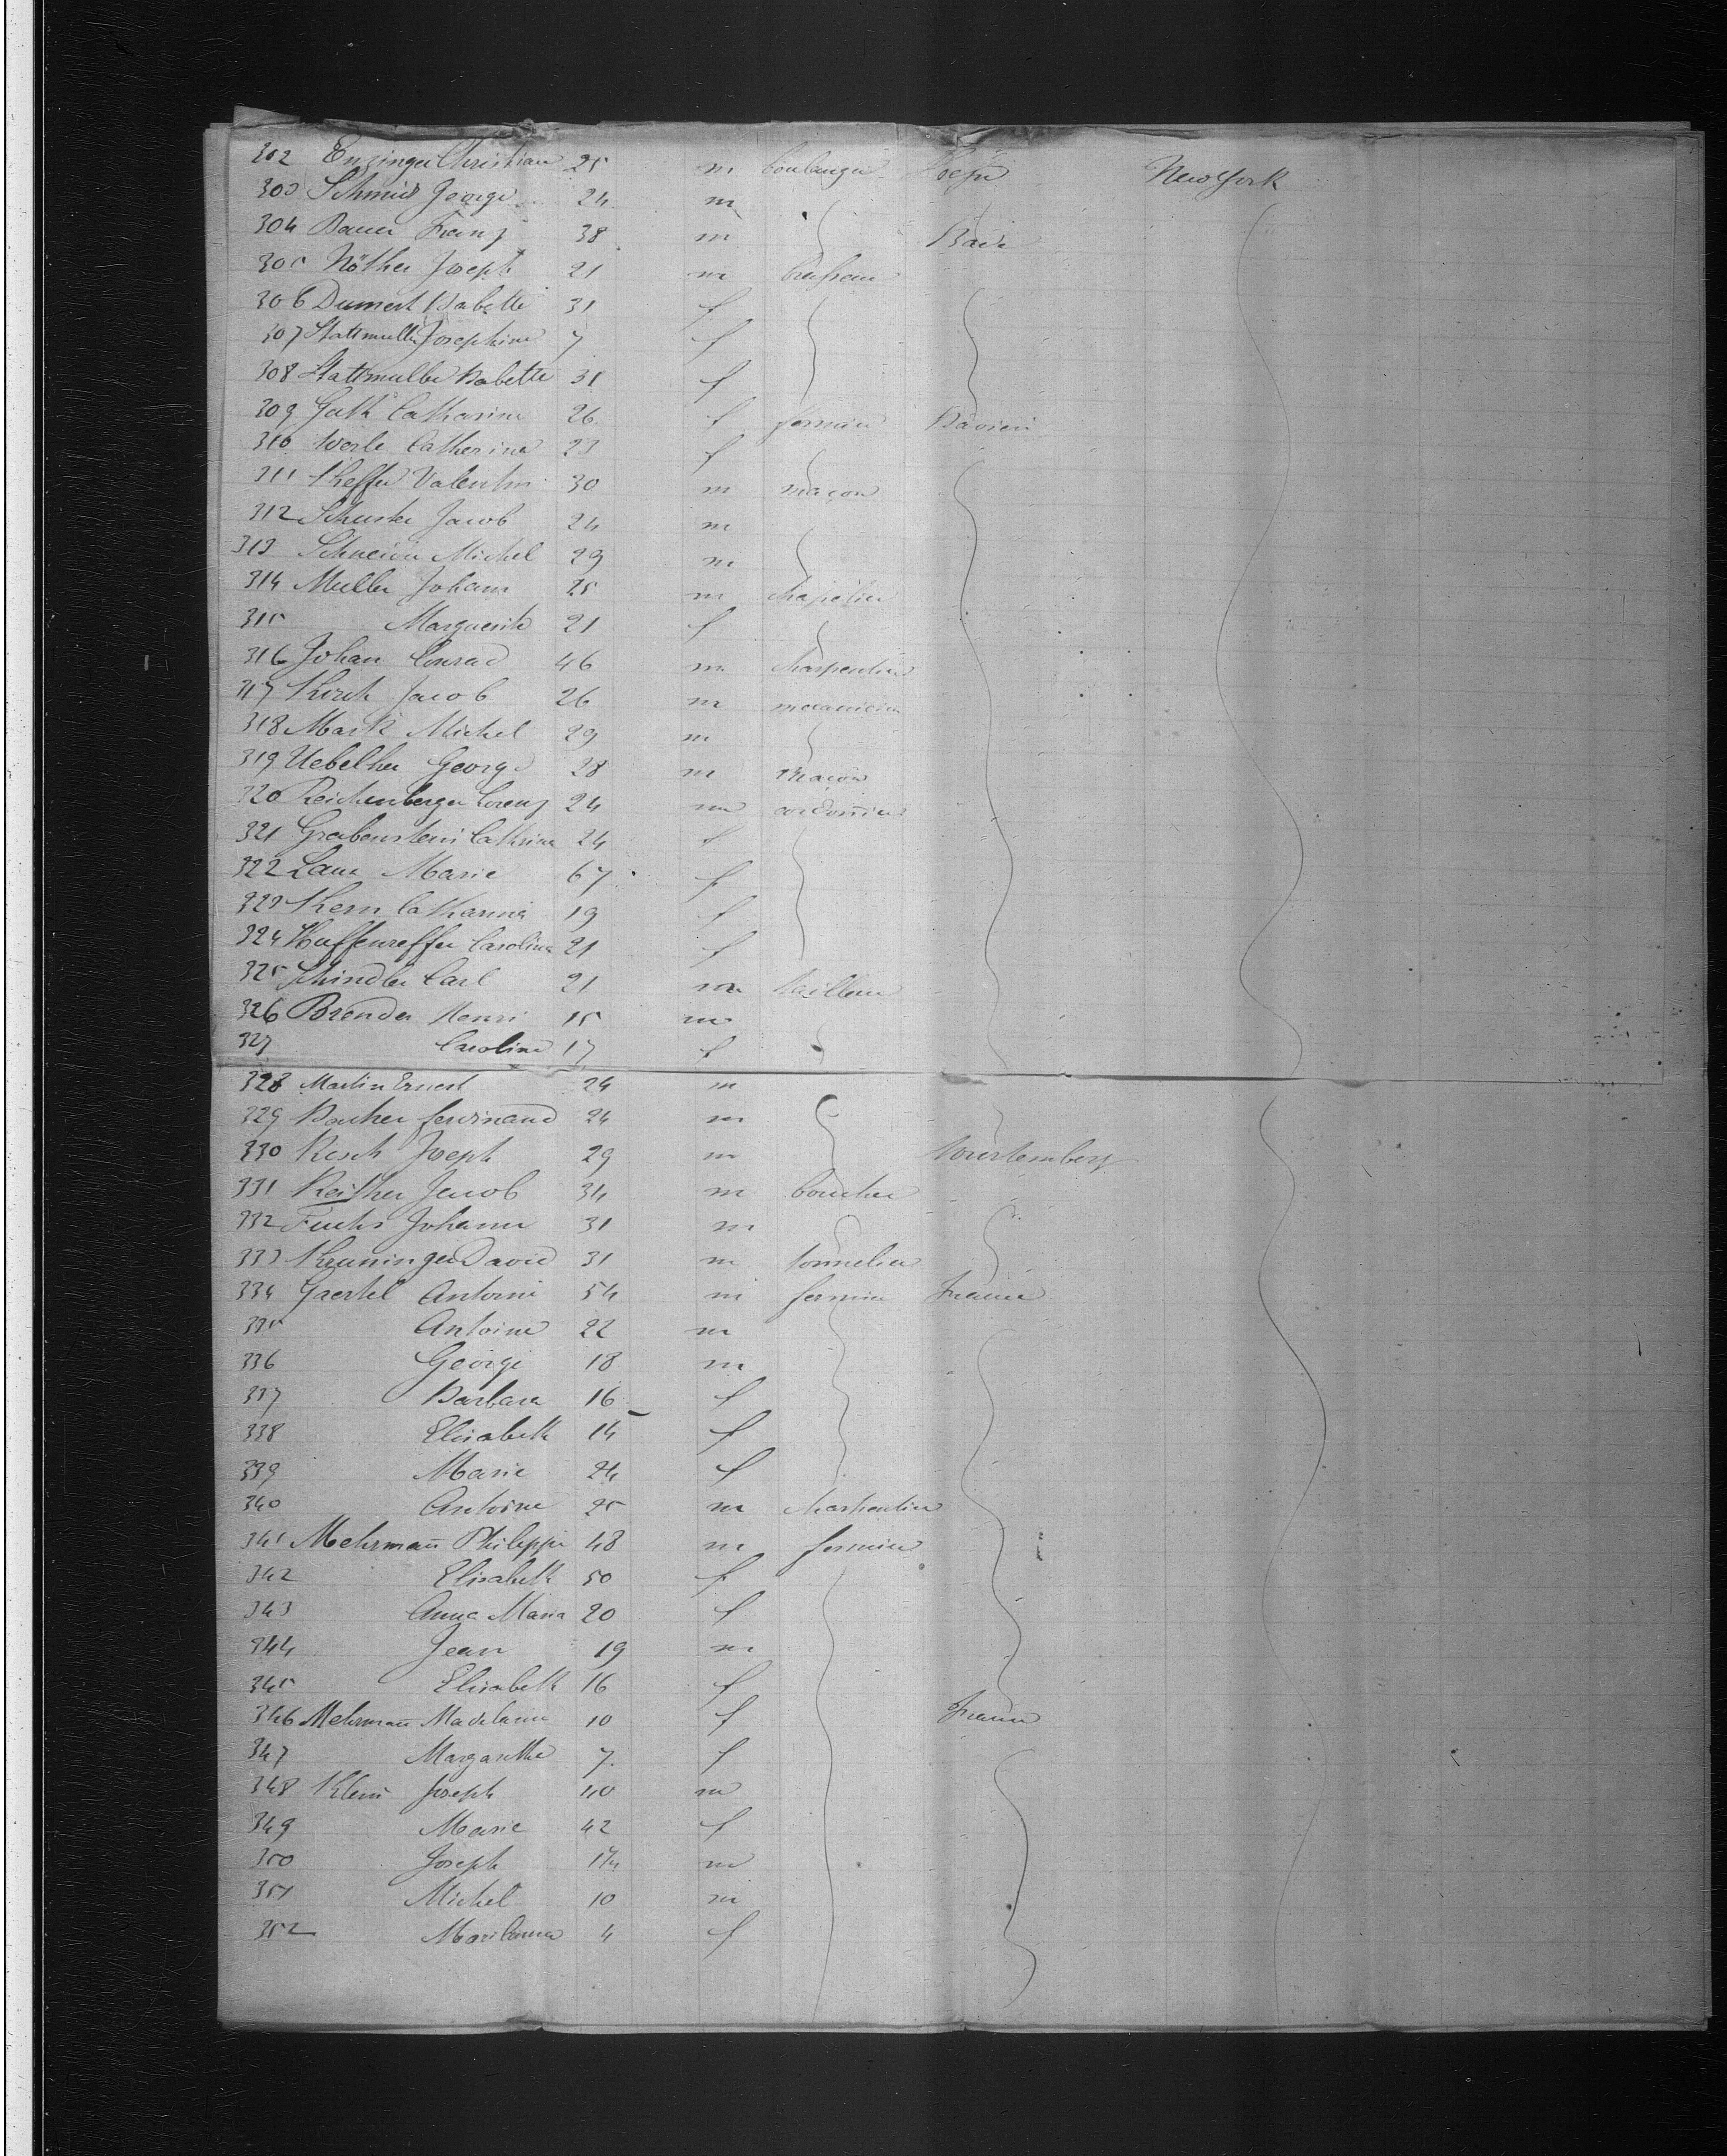 302 Enzinger Christian 25 m boulanger Hesse New York
303 Schmid George 24 m
304 Bauer Franz 38 m Bade
305 Nöther Joseph 21 m brasseur
306 Dumert Babette 31 f
307 Stattmuller Josephine 7 f
308 Stattmuller Babette 31 f
309 Guth Catharine 26 f fermier Bavière
310 Werle Catherine 23 f
311 Kheffer Valentin 30 m maçon
312 Schuster Jacob 24 m
313 Schneider Michel 29 m
314 Muller Johann 25 m chapelier
315 Marguerite 21 f
316 Johan Conrad 46 m charpentier
317 Kirch Jacob 26 m mecanicien
318 Mark Michel 29 m
319 Uebelher George 28 m maçon
320 Reichenberger Lorenz 24 m cordonnier
321 Grabenstein Cathrina 24 f
322 Laur Marie 67 f
323 Kern Catharina 19 f
324 Haffenreffer Carolina 21 f
325 Schindler Carl 21 m tailleur
326 Brender Henri 15 m
327 Caroline 17 f
328 Martin Ernest 24 m
329 Bacher ferdinand 24 m
330 Resch Joseph 29 m Wurtemberg
331 Reither Jacob 34 m boucher
332 Fuchs Johann 31 m
333 Kenninger David 31 m tonnelier
334 Gaertel Antoine 54 m fermier France
335 Antoine 22 m
336 George 18 m
337 Barbara 16 f
338 Elisabeth 14 f
339 Marie 24 f
340 Antoine 25 m charpentier
341 Mehrmañ Philippe 48 m fermier
342 Elisabeth 50 f
343 Anna Maria 20 f
344 Jean 19 m
345 Elisabeth 16 f
346 Mehrmañ Madelaine 10 f France
347 Margarethe 7 f
348 Klein Joseph 40 m
349 Marie 42 f
350 Joseph m
351 Michel 10 m
352 Marianna 4 f